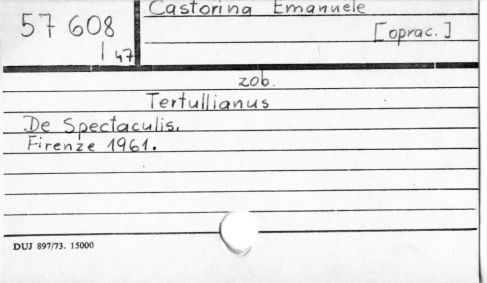 57 608
I 47
Castorina Emanuele
[oprac.]
zob.
Tertullianus
De Spectaculis.
Firenze 1961.
DUJ 897/73. 15000